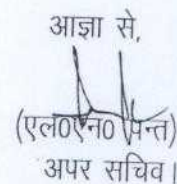 आज्ञा से,
(एल0एन0 पन्त)
अपर सचिव।